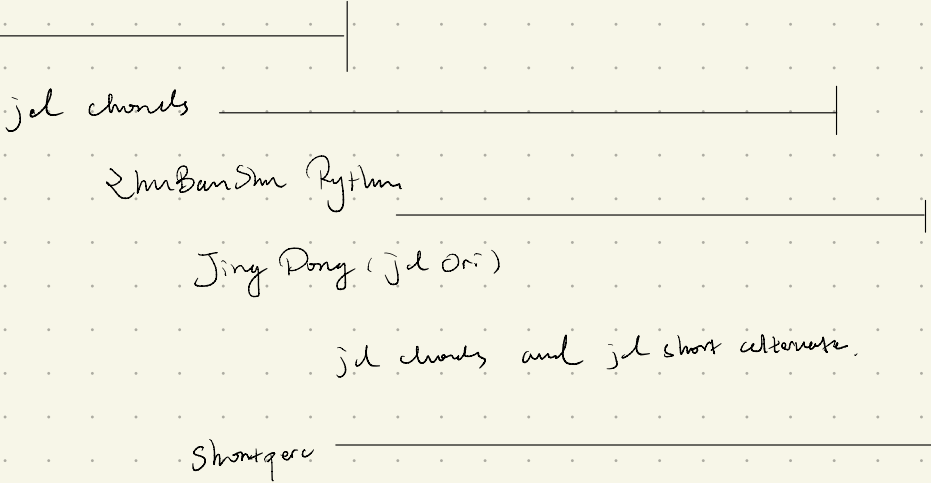 jd chords
ZhuBanShu Rythm
Jing Dong (jd Ori)
jd chords and jd short alternate.